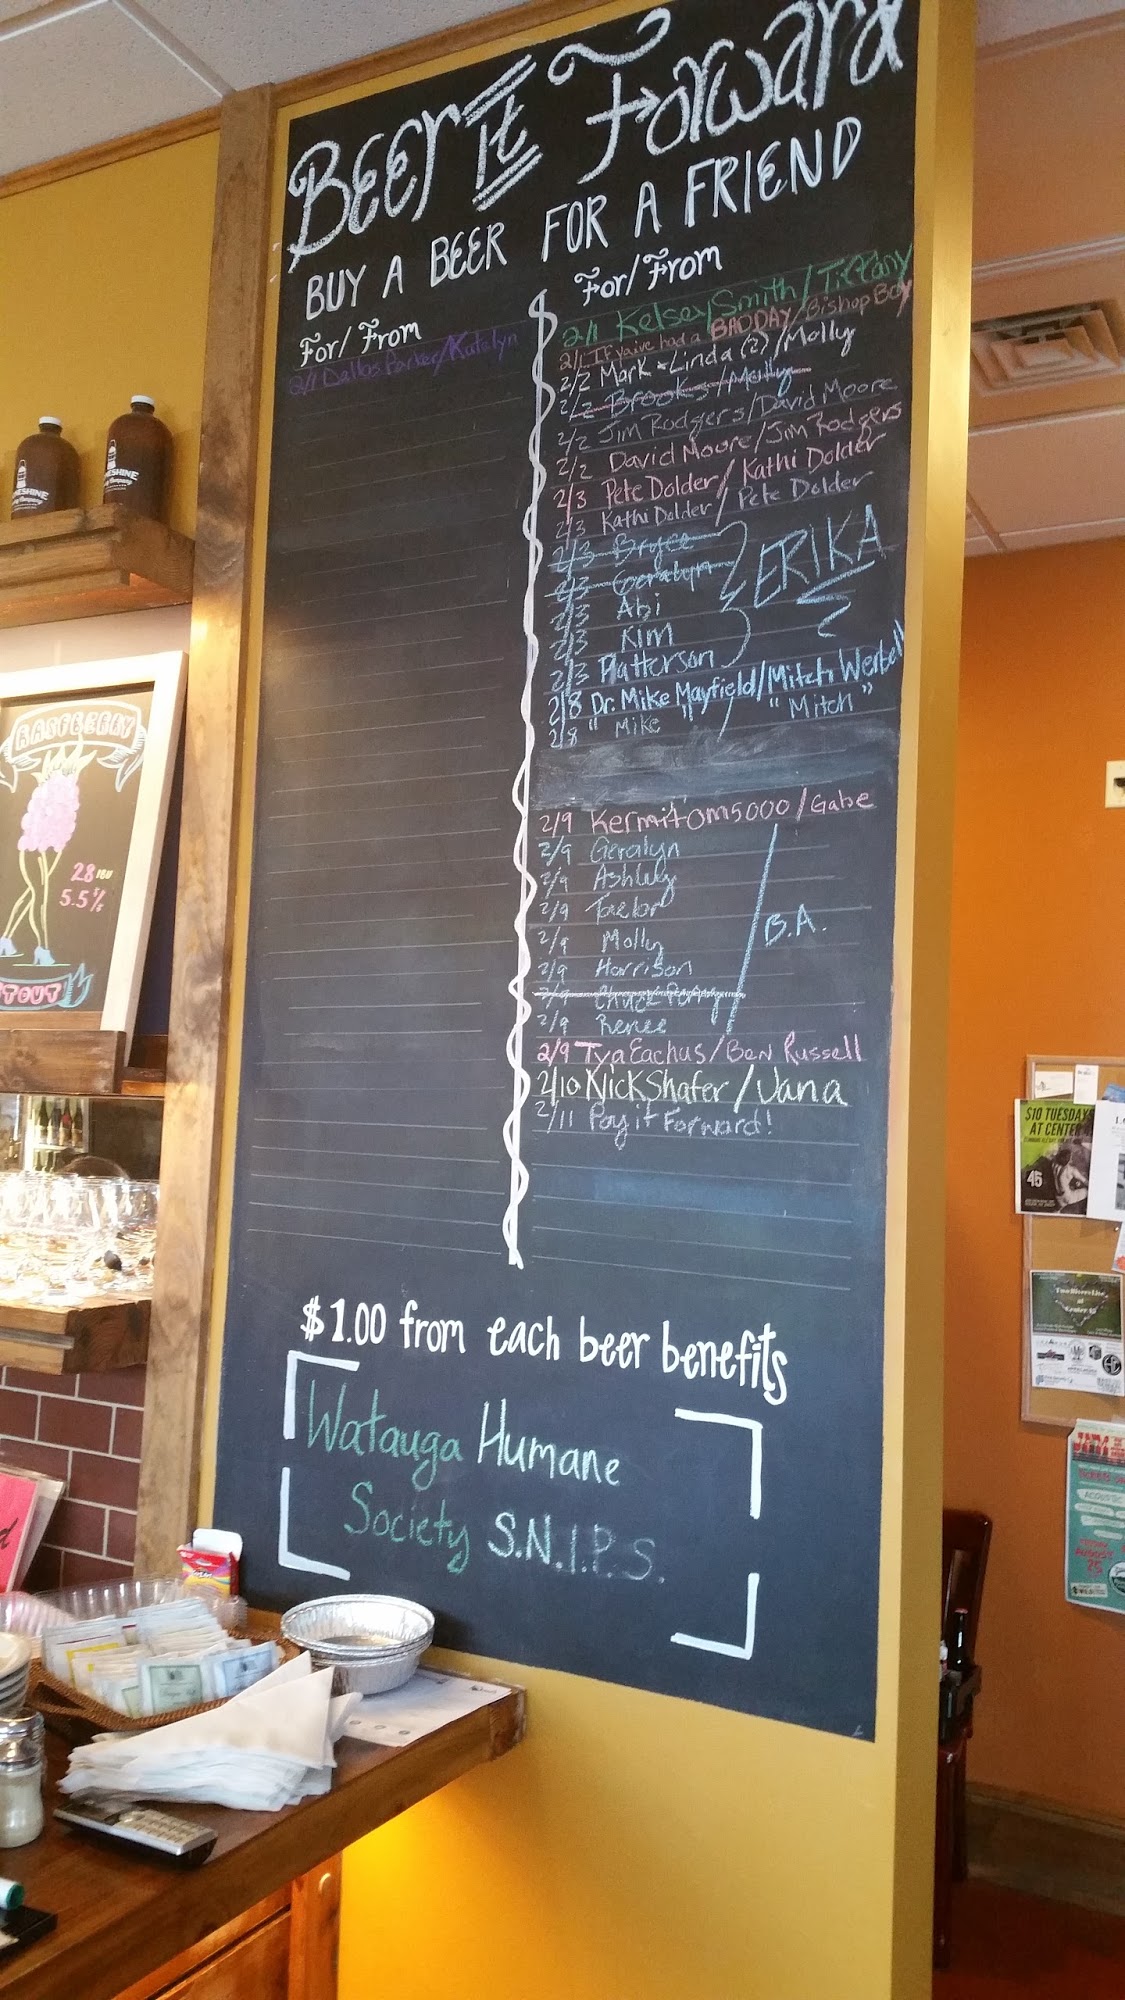 BEER It Forward
BUY A BEER FOR A FRIEND
For/From
2/1 Dallas Parker/Katelyn
For/From
2/1 Kelsey Smith/Tiffany
2/1 If you've had a BAD DAY/Bishop Boy
2/2 Mark & Linda (2)/Molly
2/2 Brooks/Molly
2/2 Jim Rodgers/David Moore
2/2 David Moore/Jim Rodgers
2/3 Pete Dolder/Kathi Dolder
2/3 Kathi Dolder/Pete Dolder
2/3 Bryce
2/3 Geralyn
2/3 Abi
2/3 Kim
2/3 Patterson
ERIKA
2/8 Dr. Mike Mayfield/Mitch Werbell
2/8 "Mike"/"Mitch"
2/9 Kermitom5000/Gabe
2/9 Geralyn
2/9 Ashley
2/9 Taelor
2/9 Molly
2/9 Harrison
2/9 Chuck Perry
2/9 Renee
B.A.
2/9 Tya Eachus/Ben Russell
2/10 Nick Shafer/Vana
2/11 Pay it Forward!
$1.00 from each beer benefits
Watauga Humane
Society S.N.I.P.S.
RASPBERRY
28 IBU
5.5%
$10 TUESDAYS
AT CENTER
45
ACOUSTIC
AUGUST
25